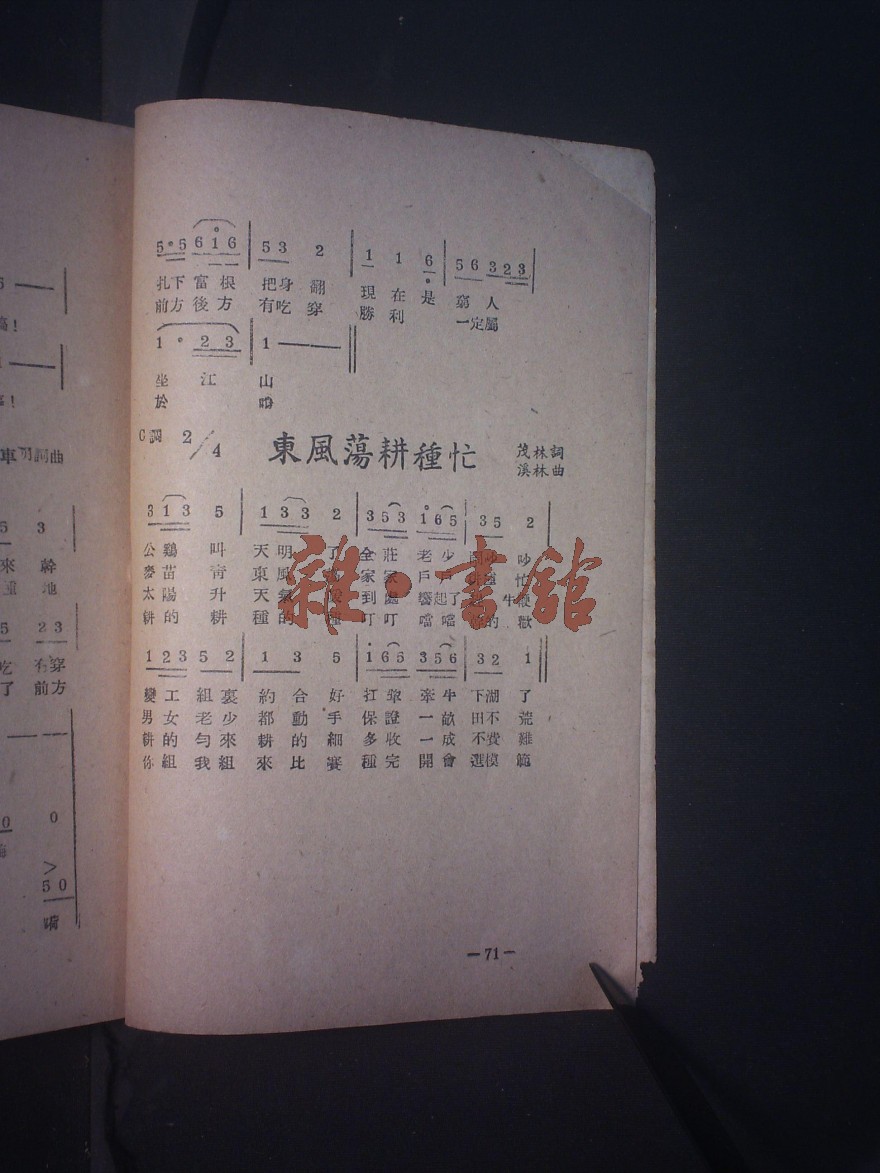 5·5 6 1 6 | 5 3 2 | 1 1 6 | 5 6 3 2 3 |
扎下 富根 把身 翻 現 在 是 窮 人
前方 後方 有吃 穿 勝 利 一定屬
1 · 2 3 | 1 — — ||
坐 江 山
於 咱
C調 2/4 東風蕩耕種忙 茂林詞
溪林曲
3 1 3 5 | 1 3 3 2 | 3 5 3 1 6 5 | 3 5 2 |
公鷄 叫 天明 了 全莊 老少 吵
麥苗 青 東風 家家 戶 忙
太陽 升 天氣 到處 響起了 牛
耕的 耕 種的 種 叮叮 噹噹 的 歡
1 2 3 5 2 | 1 3 5 | 1 6 5 3 5 6 | 3 2 1 ||
變工 組裏 約合 好 扛犂 牽牛 下湖 了
男女 老少 都動 手 保證 一畝 田不 荒
耕的 勻來 耕的 細 多收 一成 不費 難
你組 我組 來比 賽 種完 開會 選模 範
—71—
雜·書館
車 明詞曲
5 3
來 幹
重 地
5 2 3
吃 有穿
了 前方
0
5 0
嗬